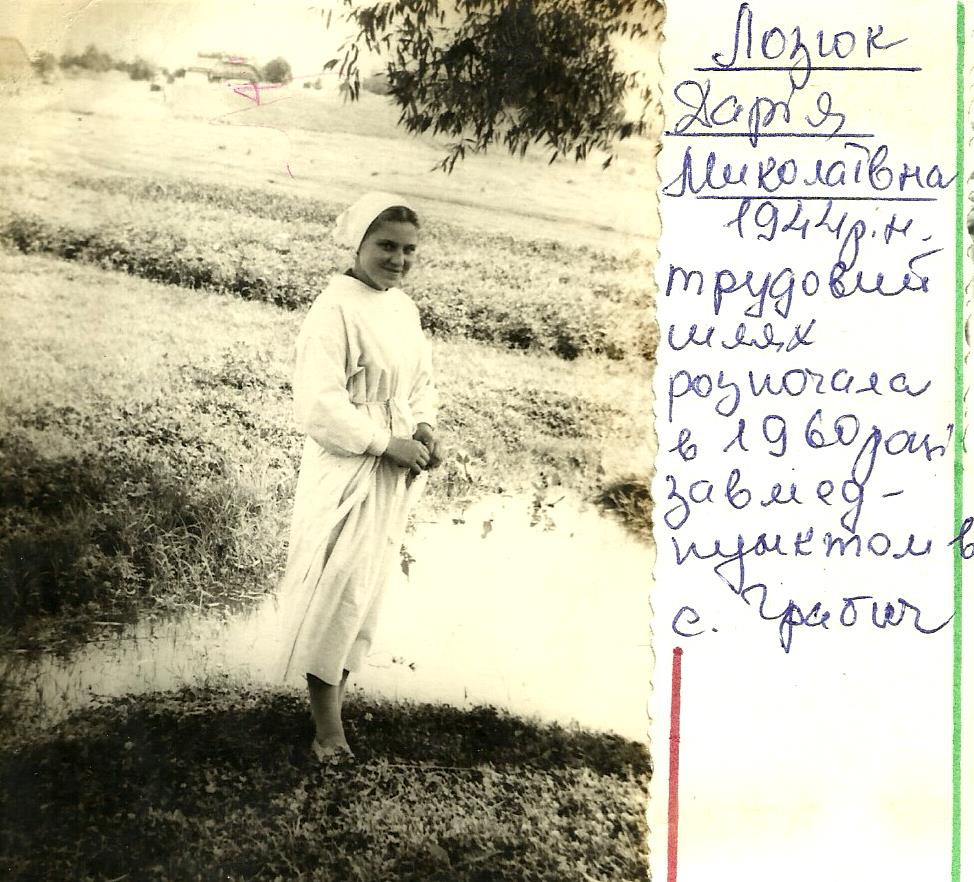 Лозюк
Дар'я
Миколаївна
1944р.н.
трудовий
шлях
розпочала
в 1960 році
завмед-
пунктом в
с. Грабич